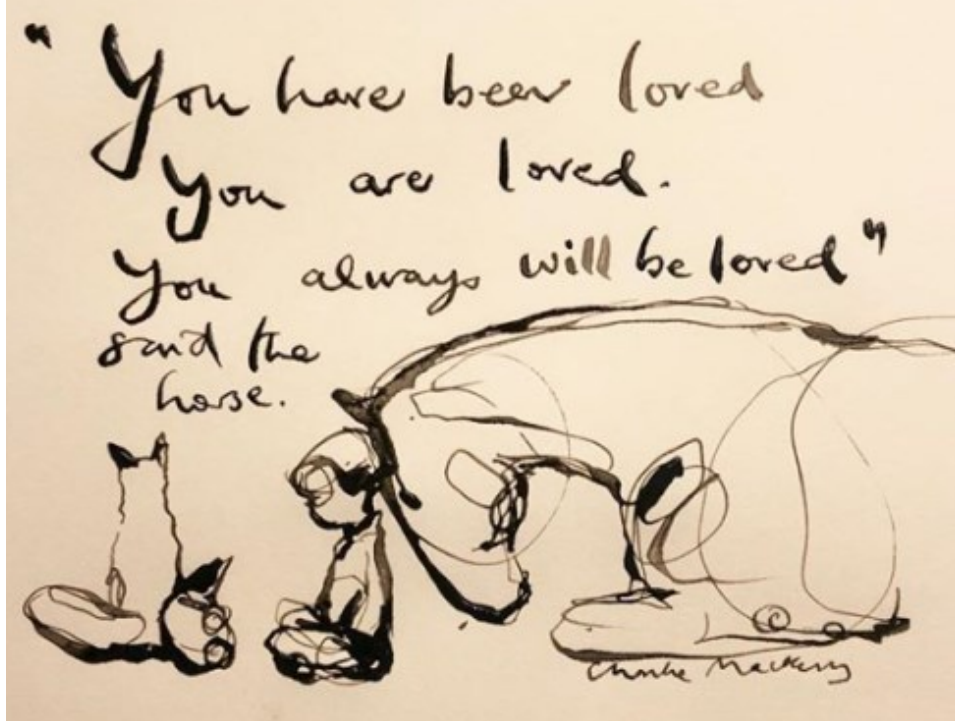 "You have been loved
You are loved.
You always will be loved"
said the
horse.
Charlie Mackesy